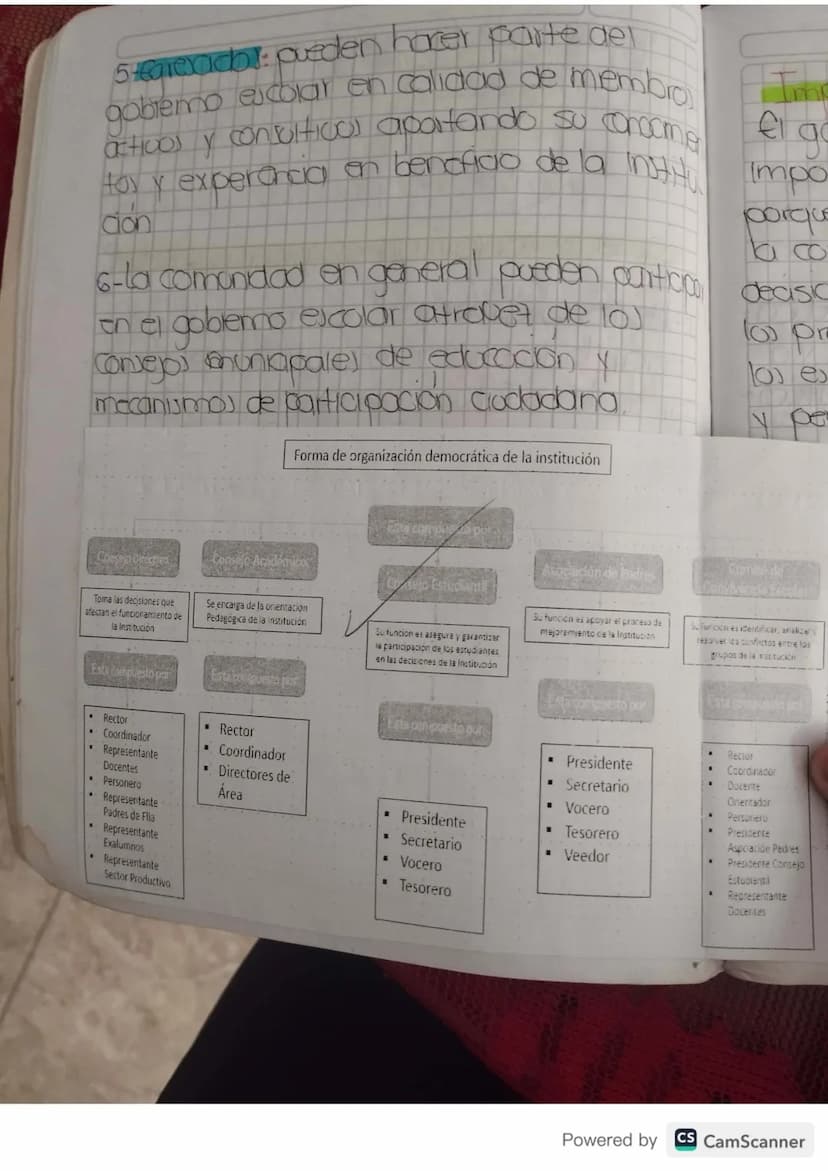 5-Egresados: pueden hacer parte del
gobierno escolar en calidad de miembros
activos y consultivos aportando su conocimien
tos y experencia en beneficio de la institu
ción
6-la comunidad en general pueden participar
en el gobierno escolar atravez de los
consejos municipales de educación y
mecanismos de participación ciudadana.
Imp
El go
impo
porque
la co
decisio
los pr
los es
y pe
Forma de organización democrática de la institución
Esta compuesto por
Consejo Directivo
Toma las decisiones que
afectan el funcionamiento de
la Institución
Esta compuesto por
Rector
Coordinador
Representante
Docentes
Personero
Representante
Padres de Flia
Representante
Exalumnos
Representante
Sector Productivo
Consejo Académico
Se encarga de la orientación
Pedagógica de la institución
Esta compuesto por
Rector
Coordinador
Directores de
Área
Consejo Estudiantil
Su función es asegura y garantizar
la participación de los estudiantes
en las decisiones de la Institución
Esta compuesto por
Presidente
Secretario
Vocero
Tesorero
Asociación de Padres
Su función es apoyar el proceso de
mejoramiento de la Institución
Esta compuesto por
Presidente
Secretario
Vocero
Tesorero
Veedor
Comité de
Convivencia Escolar
Su función es identificar, analizar y
resolver los conflictos entre los
grupos de la institución
Esta compuesto por
Rector
Coordinador
Docente
Orientador
Personero
Presidente
Asociación Padres
Presidente Consejo
Estudiantil
Representante
Docentes
Powered by CS CamScanner